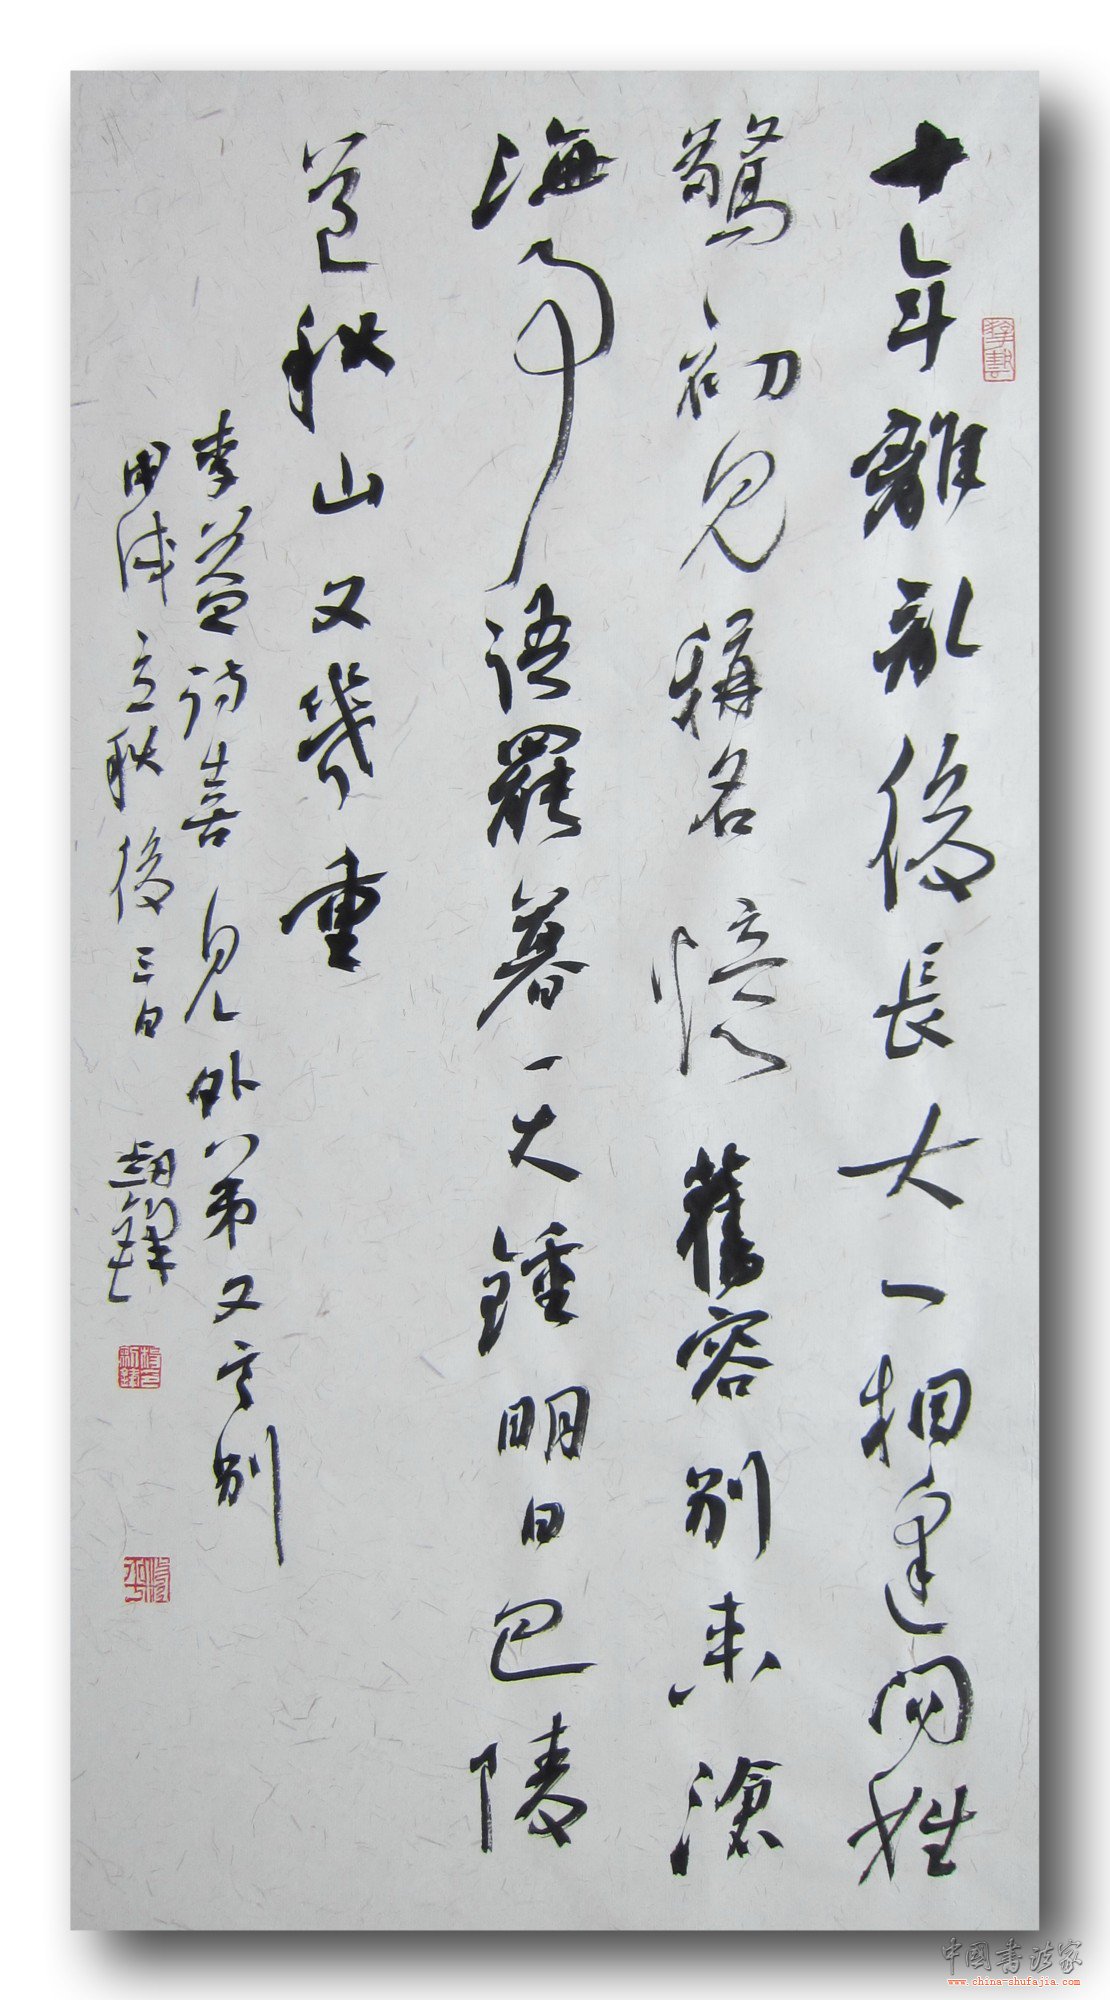 十年離亂後長大一相逢問姓
驚初見稱名憶舊容別來滄
海事語罷暮天鍾明日巴陵
道秋山又幾重
李益詩喜見外弟又言別
甲戌立秋後三日
中國書法家
www.china-shufajia.com